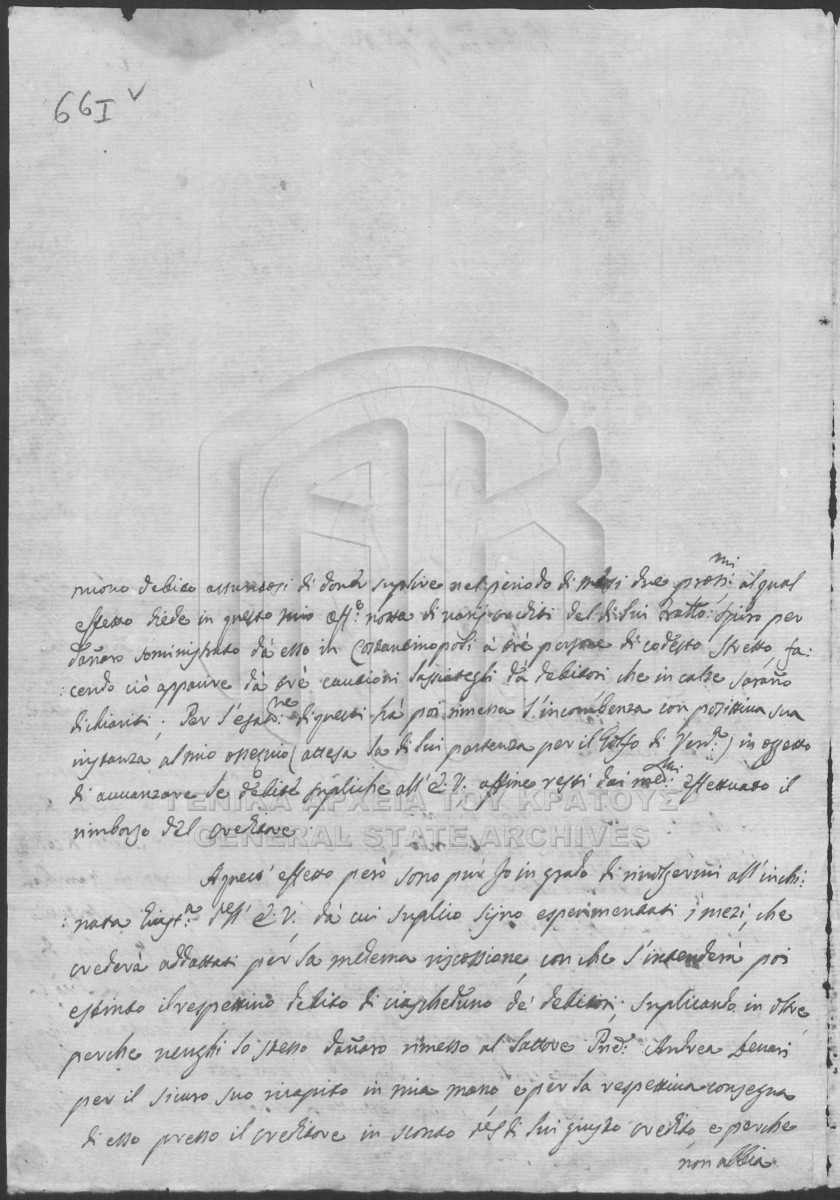 66I v
nuovo debito assuntosi di dover suplire nel periodo di mesi due prossmi: al qual
effetto diede in questo mio offo: notta di varij crediti del di lui tratto: Spiro per
dañaro soministrato dà esso in Costantinopoli à trè persone di codesto stretto fa:
:cendo ciò apparire dà trè cautioni lassiateghi dà debitori che in calse sarano
dichiariti; Per l'esazne: di questi hà poi rimessa l'incombenza con posittiva sua
instanza al mio ossequio (attesa la di lui partenza per il Golfo di Venda:) in oggetto
di avvanzare le debite supliche all'E.V. affine resti dai medmi: effettuato il
rimborso del creditore
A quest' effetto però sono pur Io in grado di rivolgermi all'inchi:
:nata dell' E.V. dà cui suplico sijno esperimentati i mezi, che
crederà addattati per la medema riscossione, con che s'intenderà poi
estinto il respettivo debito di ciascheduno de' debitori; suplicando in oltre
perche venghi lo stesso dañaro rimesso al Lattore Andrea
per il sicuro suo ricapito in mia mano e per la respettiva consegna
di esso presso il creditore in sconto del di lui giusto credito e perche
non abbia
ΓΕΝΙΚΑ ΑΡΧΕΙΑ ΤΟΥ ΚΡΑΤΟΥΣ
GENERAL STATE ARCHIVES